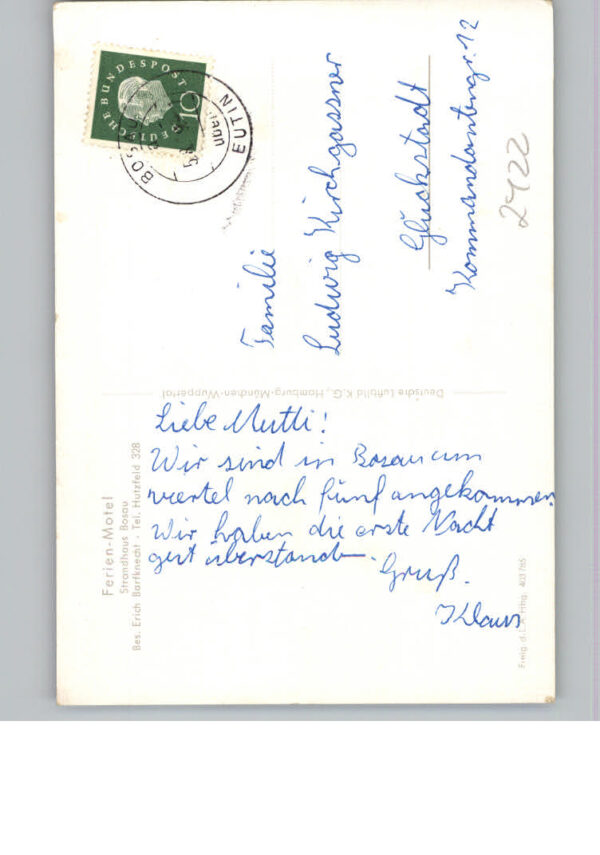 Liebe Mutti!
Wir sind in Bosau um
viertel nach fünf angekommen.
Wir haben die erste Nacht
gut überstand.
Gruß.
Klaus
Familie
Ludwig Kirchgassner
Glückstadt
Kommandantengr. 12
2422
DEUTSCHE BUNDESPOST
10
EUTIN
Ferien-Motel
Strandhaus Bosau
Bes. Erich Barfknecht · Tel. Hutzfeld 328
Deutsche Luftbild K.G., Hamburg-München-Wuppertal
Freig. d. L.A. Hbg. 403765